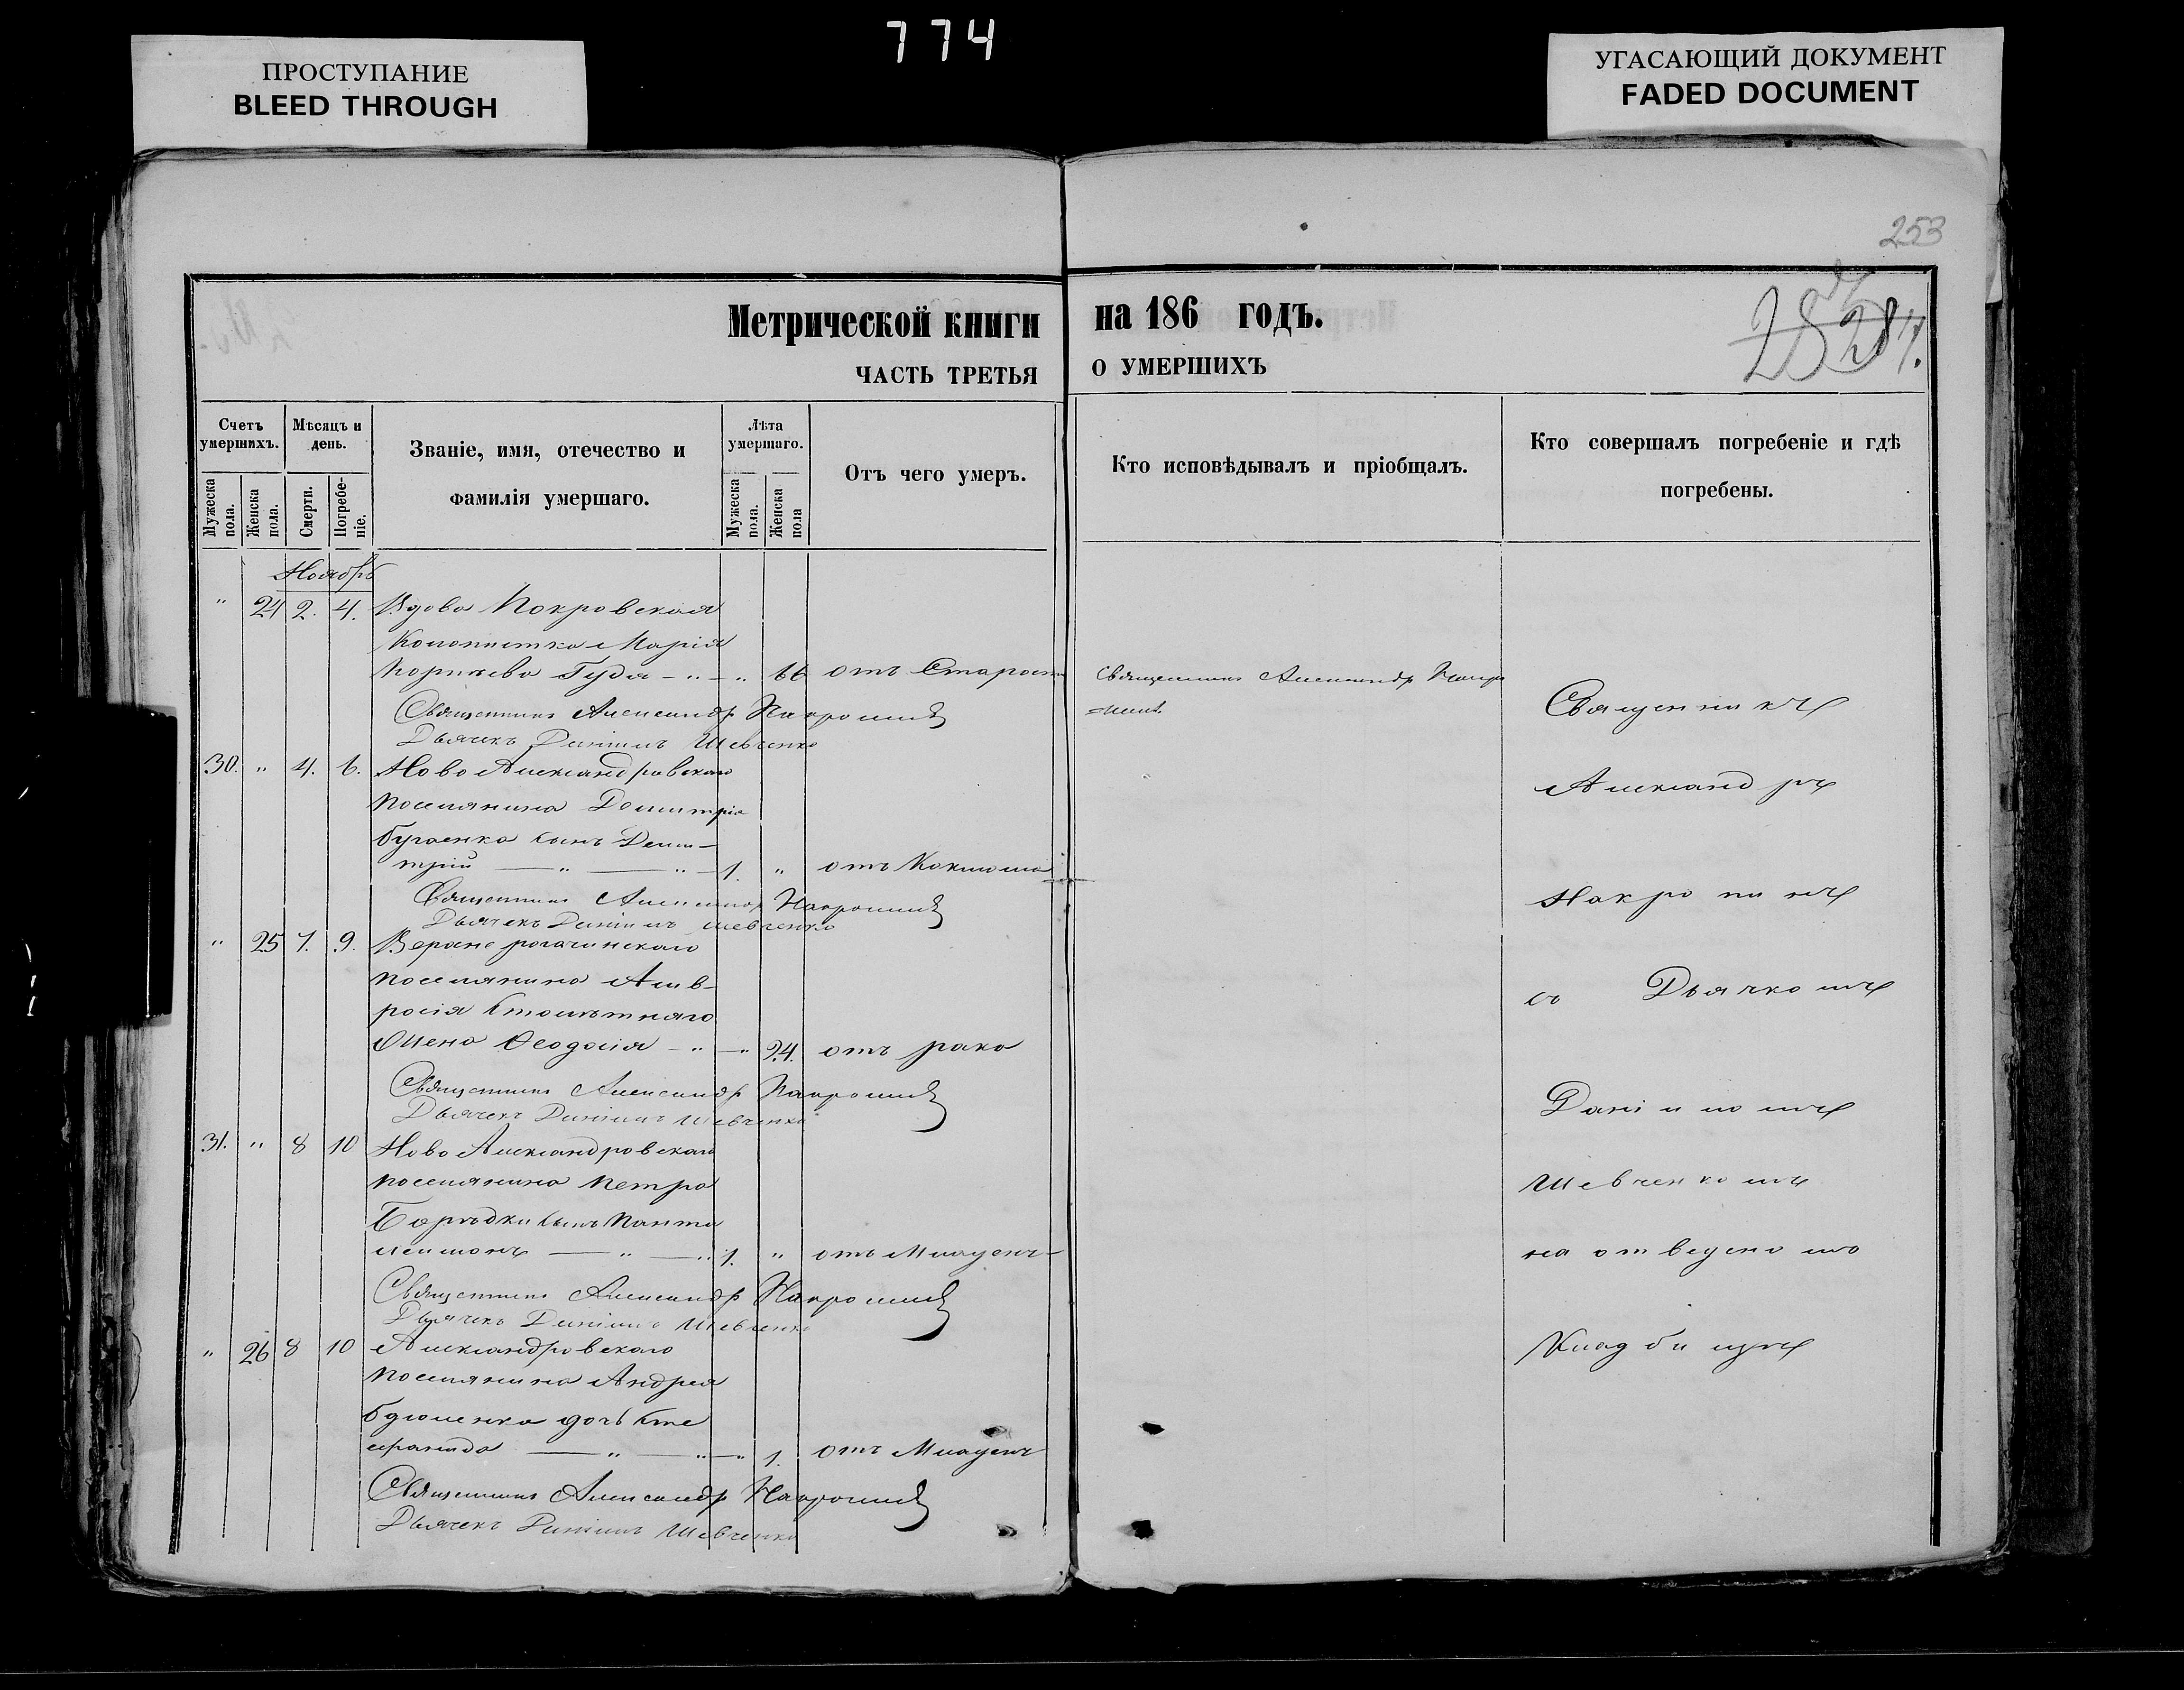 774
ПРОСТУПАНИЕ
BLEED THROUGH
УГАСАЮЩИЙ ДОКУМЕНТ
FADED DOCUMENT
253
Метрической книги на 186 годъ.
ЧАСТЬ ТРЕТЬЯ О УМЕРШИХЪ
Счетъ умершихъ.
Мужеска пола.
Женска пола.
Мѣсяцъ и день.
Смерти.
Погребеніе.
Званіе, имя, отечество и фамилія умершаго.
Лѣта умершаго.
Мужеска пола.
Женска пола
Отъ чего умеръ.
Кто исповѣдывалъ и пріобщалъ.
Кто совершалъ погребеніе и гдѣ погребены.
Ноябрь
" 24 2. 4. Вдова Покровская
Марія
Гудя - " - " 66 отъ Старости
Священникъ Александръ
Священникъ Александръ Накропинъ
Дьячекъ Даніилъ Шевченко
30. " 4. 6. Ново Александровскаго
поселянина Димитрія
бугаенка сынъ Дими-
трій — " — " — 1. " отъ Коклюша
Священникъ Александръ Накропинъ
Дьячекъ Даніилъ Шевченко
" 25 7. 9. Верхне рогачинскаго
поселянина Амв-
росія Столѣтняго
Жена Ѳеодосія - " - " 24. отъ рака
Священникъ Александръ Накропинъ
Дьячекъ Даніилъ Шевченко
31. " 8 10 Ново Александровскаго
поселянина Петра
сынъ Панте
леимонъ — " — " 1. " отъ Младенч-
Священникъ Александръ Накропинъ
Дьячекъ Даніилъ Шевченко
" 26 8 10 Александровскаго
поселянина Андрея
дочь Сте
— " — " — " 1. отъ Младенч
Священникъ Александръ Накропинъ
Дьячекъ Даніилъ Шевченко
Священникъ
Александръ
Накропинъ
съ Дьячкомъ
Даніиломъ
Шевченкомъ
на отведеномъ
Кладбищѣ